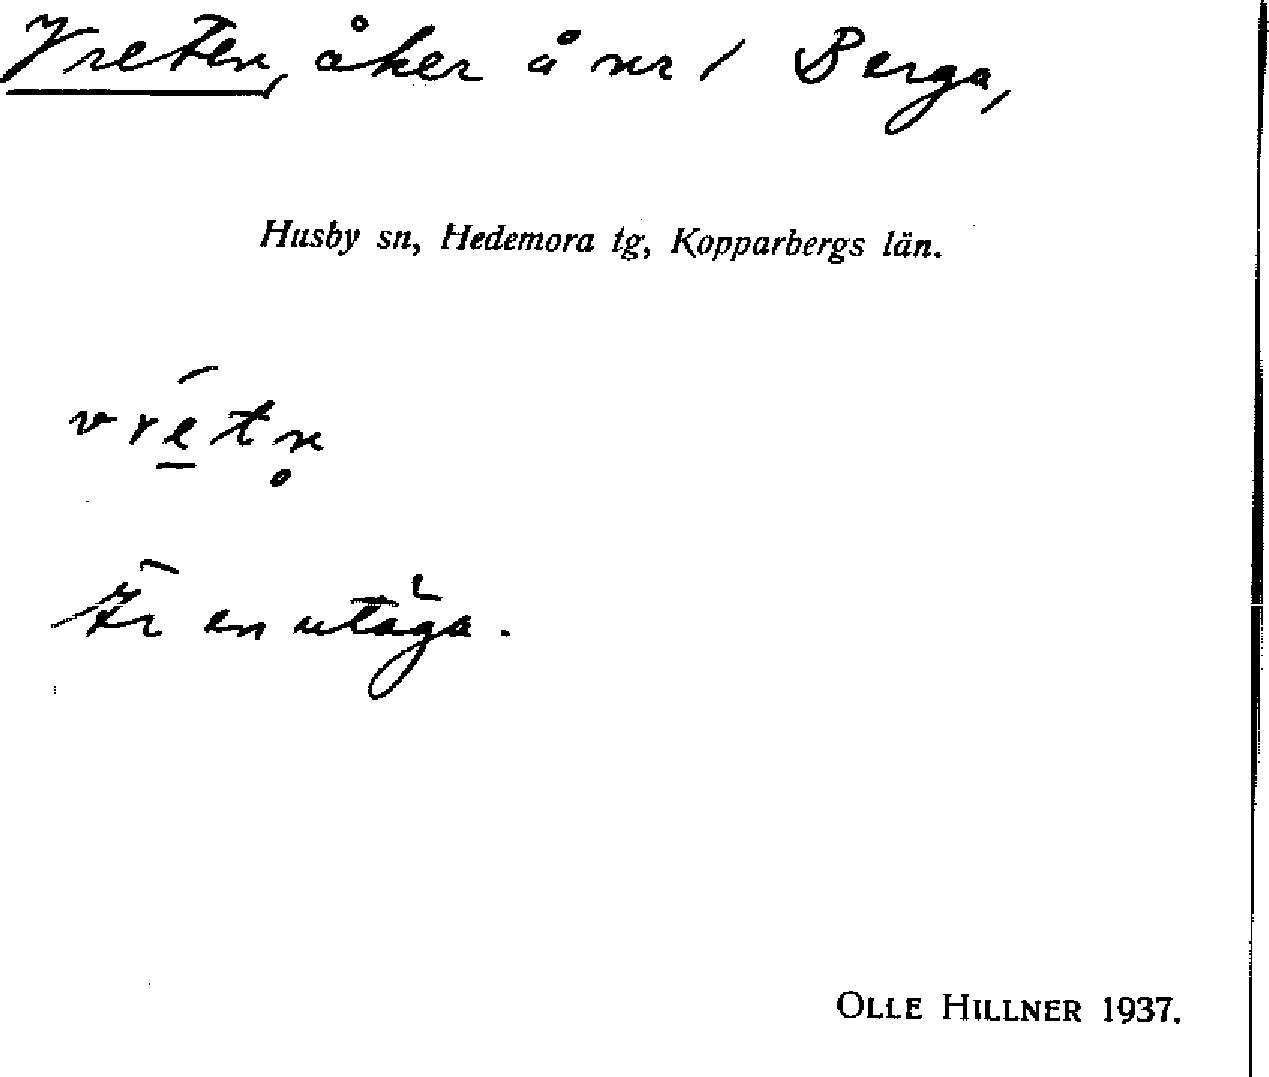 Vreten, åker å nr 1 Berga,
Husby sn, Hedemora tg, Kopparbergs län.
vré̲tn̥
Är en utäga.
OLLE HILLNER 1937.